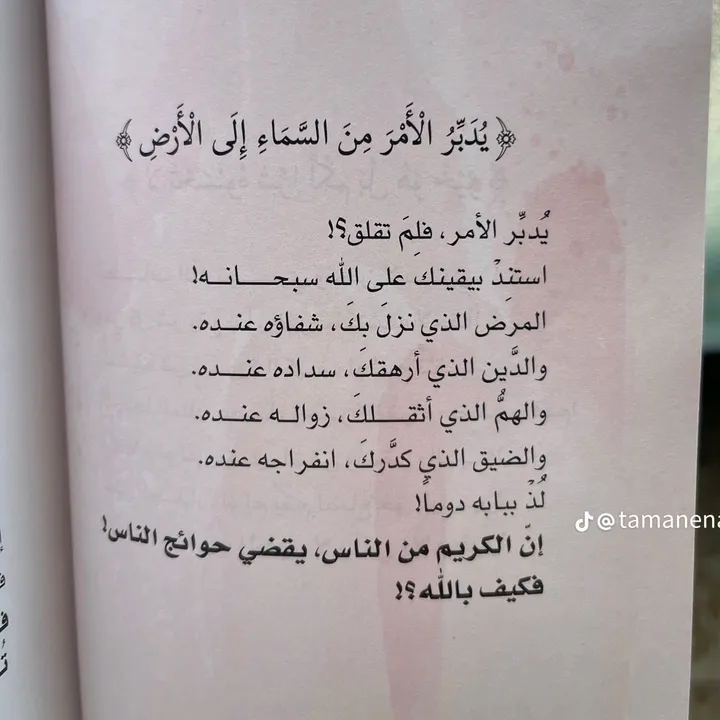 ﴿ يُدَبِّرُ الْأَمْرَ مِنَ السَّمَاءِ إِلَى الْأَرْضِ ﴾
يُدبِّر الأمر، فلِمَ تقلق؟!
استنِدْ بيقينكَ على الله سبحانه!
المرض الذي نزلَ بكَ، شفاؤه عنده.
والدَّين الذي أرهقكَ، سداده عنده.
والهمُّ الذي أثقلكَ، زواله عنده.
والضيق الذي كدَّركَ، انفراجه عنده.
لُذْ ببابه دوماً!
إنّ الكريم من الناس، يقضي حوائج الناس!
فكيف بالله؟!
@tamanena